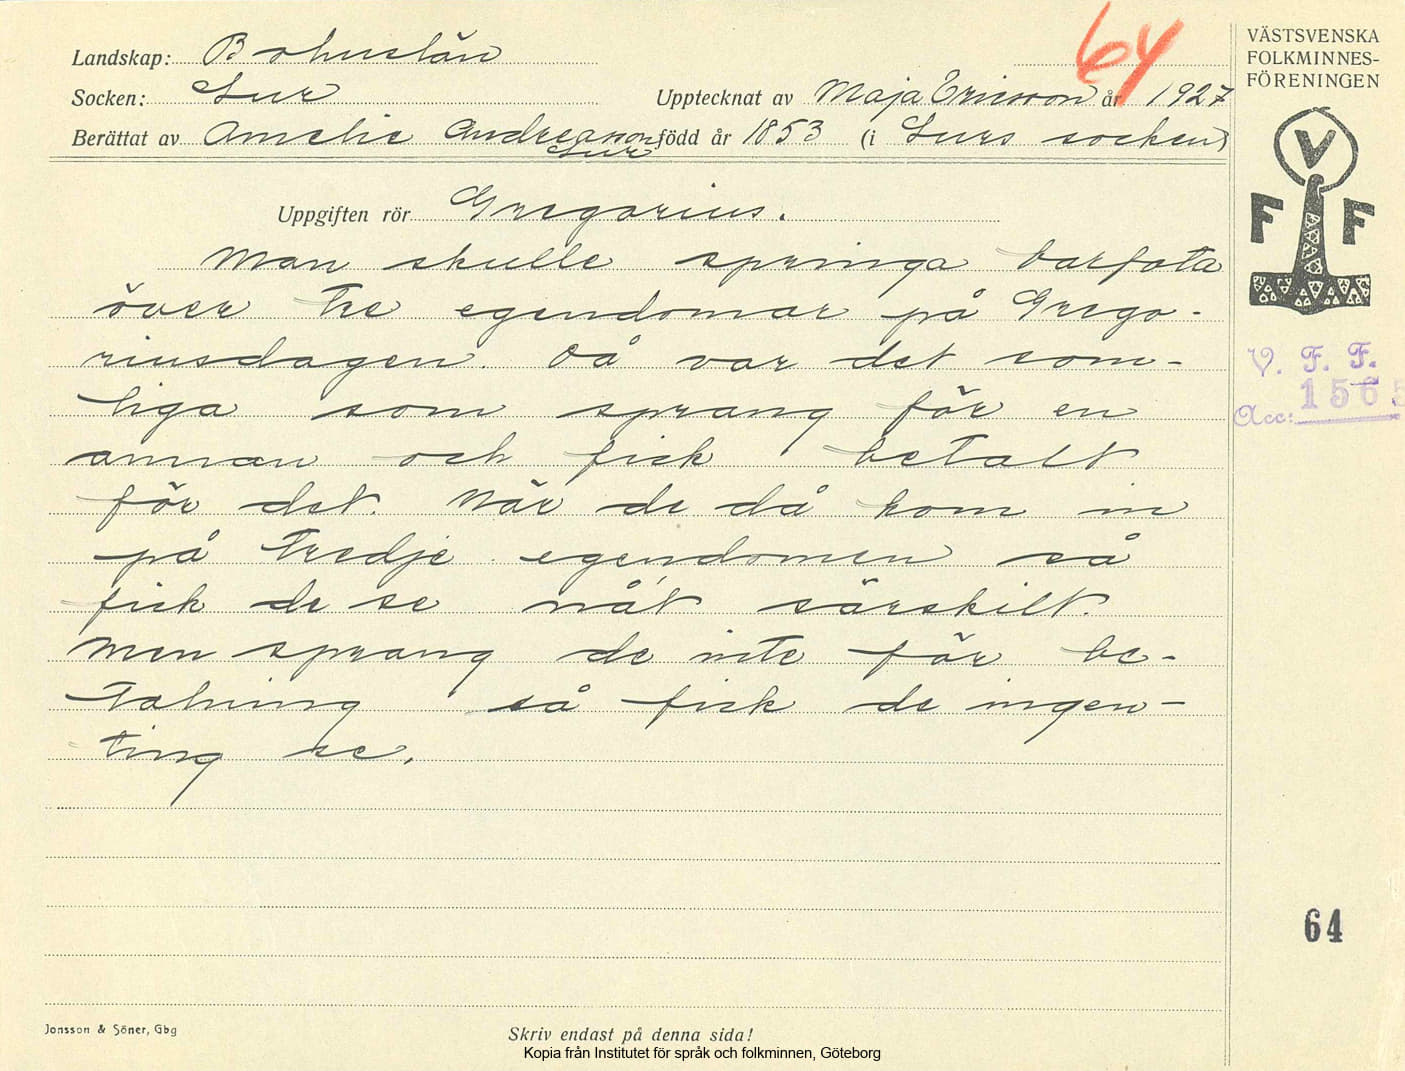 64
Landskap: Bohuslän
Socken: Lur
Upptecknat av Maja Ericsson år 1927
Berättat av Amelie Andreasson, född år 1853 (i Lurs socken)
Lur
Uppgiften rör Gregorius.
Man skulle springa barfota
över tre egendomar på Grego-
riusdagen. Då var det som-
liga som sprang för en
annan och fick betalt
för det. När de då kom in
på tredje egendomen så
fick de se nåt särskilt.
Men sprang de inte för be-
talning så fick de ingen-
ting se.
VÄSTSVENSKA
FOLKMINNES-
FÖRENINGEN
V
F F
V. F. F.
Acc: 1565
64
Jonsson & Söner, Gbg
Skriv endast på denna sida!
Kopia från Institutet för språk och folkminnen, Göteborg